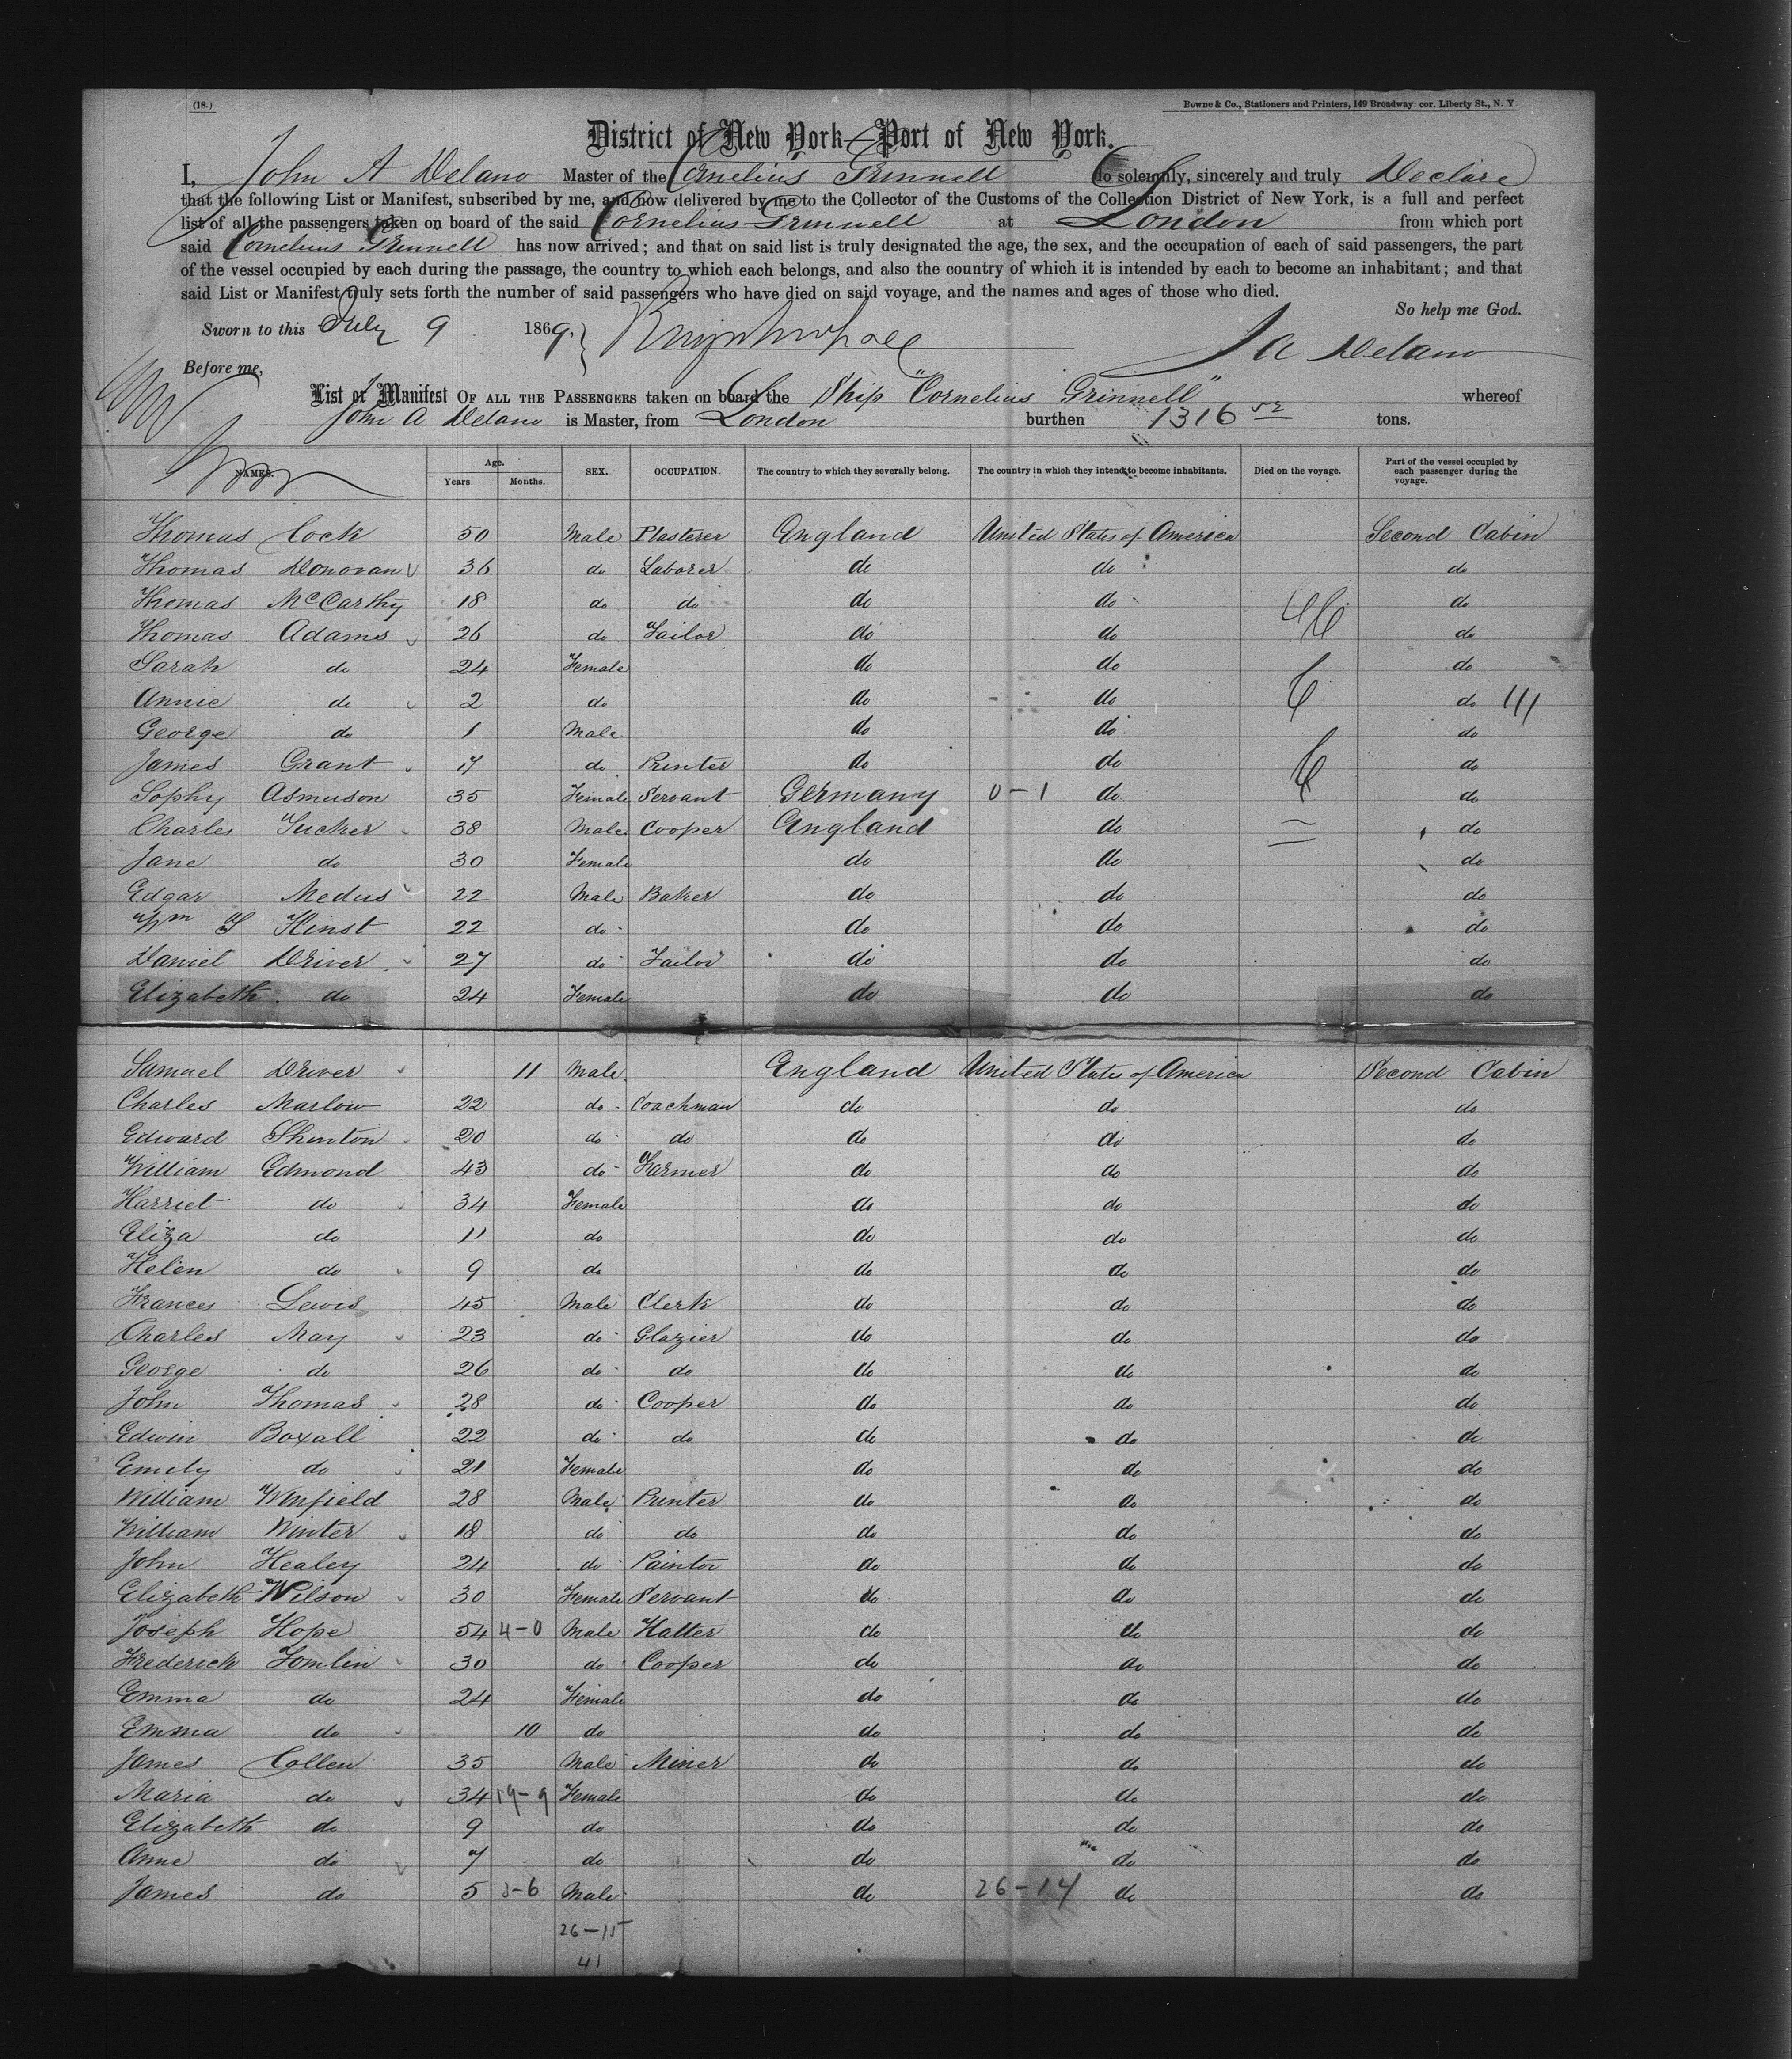 (18.)
Bowne & Co., Stationers and Printers, 149 Broadway cor. Liberty St., N. Y.
District of New York—Port of New York.
I, John A Delano Master of the Cornelius Grinnell do solemnly, sincerely and truly Declare
that the following List or Manifest, subscribed by me, and now delivered by me to the Collector of the Customs of the Collection District of New York, is a full and perfect
list of all the passengers taken on board of the said Cornelius Grinnell at London from which port
said Cornelius Grinnell has now arrived; and that on said list is truly designated the age, the sex, and the occupation of each of said passengers, the part
of the vessel occupied by each during the passage, the country to which each belongs, and also the country of which it is intended by each to become an inhabitant; and that
said List or Manifest truly sets forth the number of said passengers who have died on said voyage, and the names and ages of those who died.
So help me God.
Sworn to this July 9 1869.
J A Delano
Before me,
List or Manifest OF ALL THE PASSENGERS taken on board the Ship "Cornelius Grinnell" whereof
John A Delano is Master, from London burthen 1316 52 tons.
NAMES. Age. Years. Months. SEX. OCCUPATION. The country to which they severally belong. The country in which they intend to become inhabitants. Died on the voyage. Part of the vessel occupied by each passenger during the voyage.
Thomas Cock 50 Male Plasterer England United States of America Second Cabin
Thomas Donovan 36 do Laborer do do do
Thomas McCarthy 18 do do do do do
Thomas Adams 26 do Tailor do do do
Sarah do 24 Female do do do
Annie do 2 do do do do
George do 1 Male do do do
James Grant 17 do Printer do do do
Sophy Asmuson 35 Female Servant Germany 0-1 do do
Charles Tucker 38 Male Cooper England do do
Jane do 30 Female do do do
Edgar Medus 22 Male Baker do do do
Wm Hinst 22 do do do do
Daniel Driver 27 do Tailor do do do
Elizabeth do 24 Female do do do
Samuel Driver 11 Male England United States of America Second Cabin
Charles Marlow 22 do Coachman do do do
Edward Shinton 20 do do do do do
William Edmond 43 do Farmer do do do
Harriet do 34 Female do do do
Eliza do 11 do do do do
Helen do 9 do do do do
Frances Lewis 45 Male Clerk do do do
Charles May 23 do Glazier do do do
George do 26 do do do do do
John Thomas 28 do Cooper do do do
Edwin Boxall 22 do do do do do
Emily do 21 Female do do do
William Winfield 28 Male Printer do do do
William Winter 18 do do do do do
John Healey 24 do Painter do do do
Elizabeth Wilson 30 Female Servant do do do
Joseph Hope 54 4-0 Male Hatter do do do
Frederick Tomlin 30 do Cooper do do do
Emma do 24 Female do do do
Emma do 10 do do do do
James Collen 35 Male Miner do do do
Maria do 34 19-9 Female do do do
Elizabeth do 9 do do do do
Anne do 7 do do do do
James do 5 3-6 Male do 26-14 do do
26-15
41